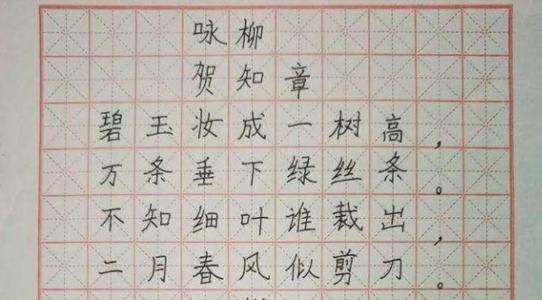 咏柳
贺知章
碧玉妆成一树高，
万条垂下绿丝条。
不知细叶谁裁出，
二月春风似剪刀。